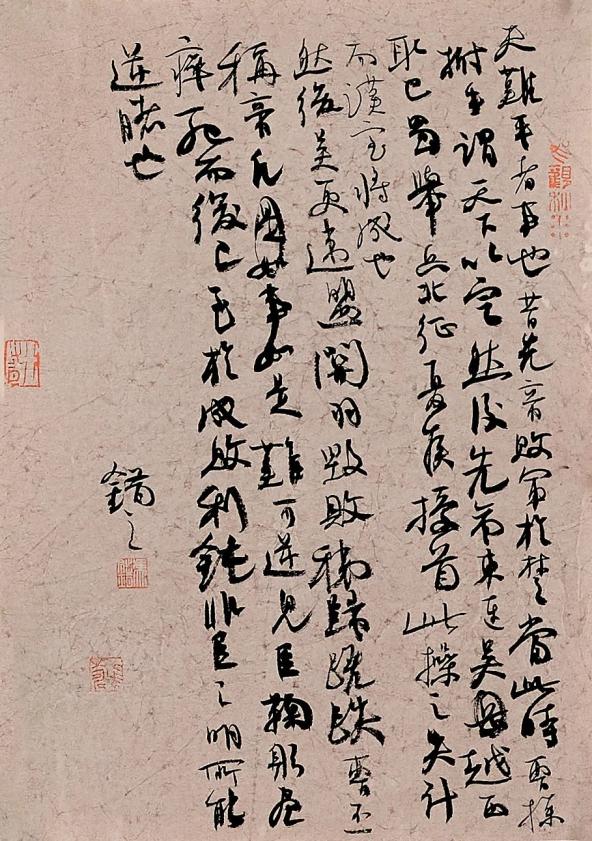 夫難平者事也昔先帝敗軍於楚當此時曹操
拊手謂天下以定然後先帝東連吳越西
取巴蜀舉兵北征夏侯授首此操之失計
而漢室將成也
然後吳更違盟關羽毀敗秭歸蹉跌曹丕
稱帝凡事如是難可逆見臣鞠躬盡
瘁死而後已至於成敗利鈍非臣之明所能
逆睹也